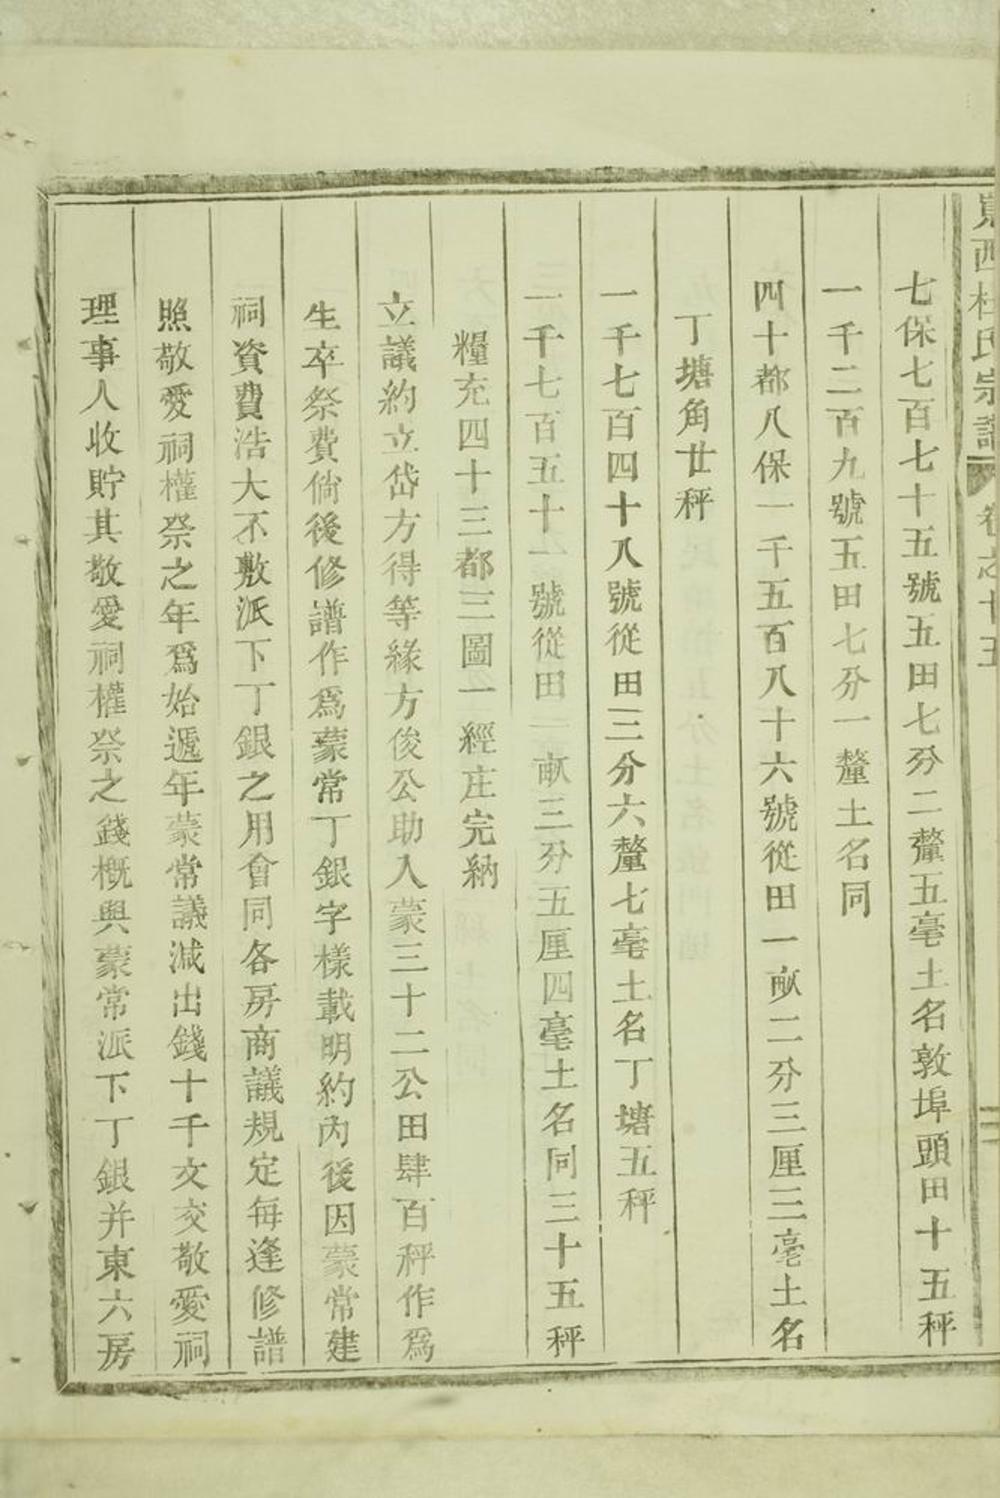 西杜氏宗譜 卷之十五
七保七百七十五號五田七分二釐五毫土名敦埠頭田十五秤
一千二百九號五田七分一釐土名同
四十都八保一千五百八十六號從田一畝二分三厘三毫土名
丁塘角廿秤
一千七百四十八號從田三分六釐七毫土名丁塘五秤
一千七百五十一號從田二畝三分五厘四毫土名同三十五秤
糧充四十三都三圖一經庄完納
立議約立岱方得等緣方俊公助入蒙三十二公田肆百秤作爲
生卒祭費倘後修譜作爲蒙常丁銀字樣載明約內後因蒙常建
祠資費浩大不敷派下丁銀之用會同各房商議規定每逢修譜
照敬愛祠權祭之年爲始遞年蒙常議減出錢十千文交敬愛祠
理事人收貯其敬愛祠權祭之錢概與蒙常派下丁銀并東六房